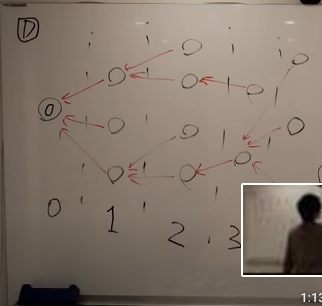 D
0
0 1 2 3
1:13